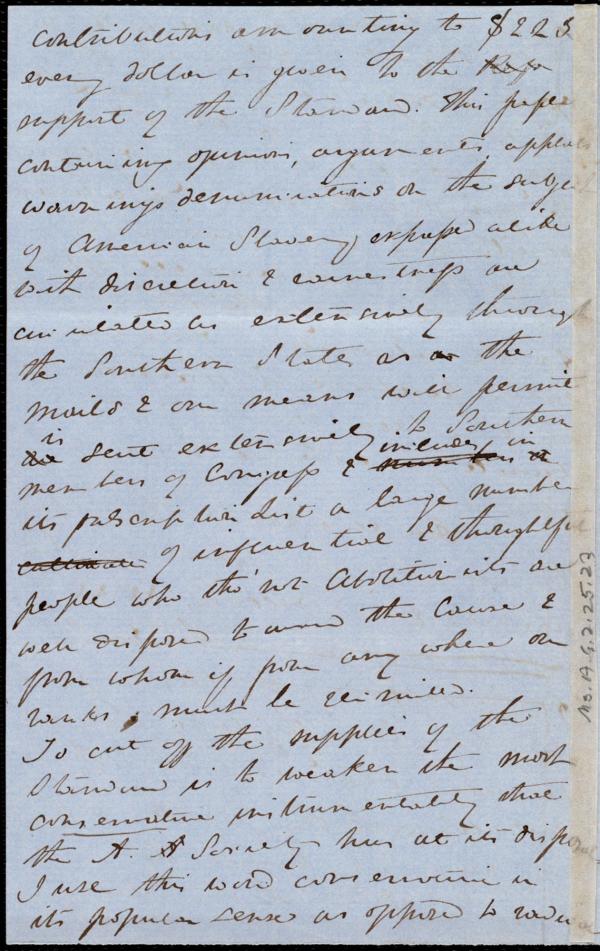 contributions amounting to $223
every dollar is given to the
support of the Standard. This paper
containing opinions, arguments, appeals
warnings denunciations on the subject
of American Slavery expressed alike
with discretion & earnestness are
circulated as extensively through
the Southern States as the
mails & our means will permit
is sent extensively to Southern
members of Congress & includes in
its subscription list a large number
of influential & thoughtful
people who tho' not Abolitionists are
well disposed toward the Cause &
from whom if from any where our
ranks must be recruited.
To cut off the supplies of the
Standard is to weaken the most
conservative instrumentality that
the A. S Society has at its disposal
I use this word conservative in
its popular sense as opposed to radical
Ms. A. 9. 2. 25. 27